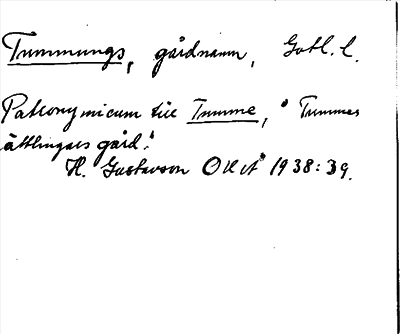 Tummungs, gårdnamn, Gotl. l.
Patronymicum till Tumme, "Tummes
ättlingars gård."
H. Gustavson 1938:39.